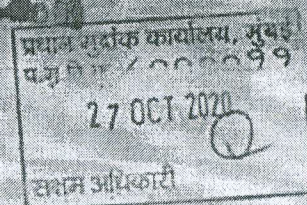 प्रधान मुद्रांक कार्यालय, मुंबई
प.मु.वि.क्र. ८००००११
27 OCT 2020
सक्षम अधिकारी